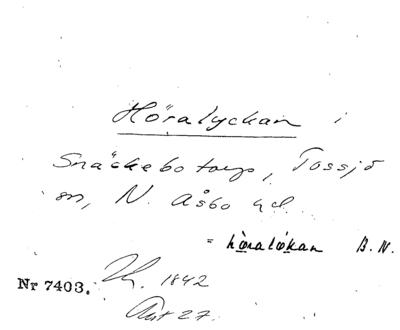 Höralyckan i
Snäckebotorp, Tossjö
sn, N. Åsbo hd.
= hòralø̀kan B.N.
Nr 7403. 1842
27.